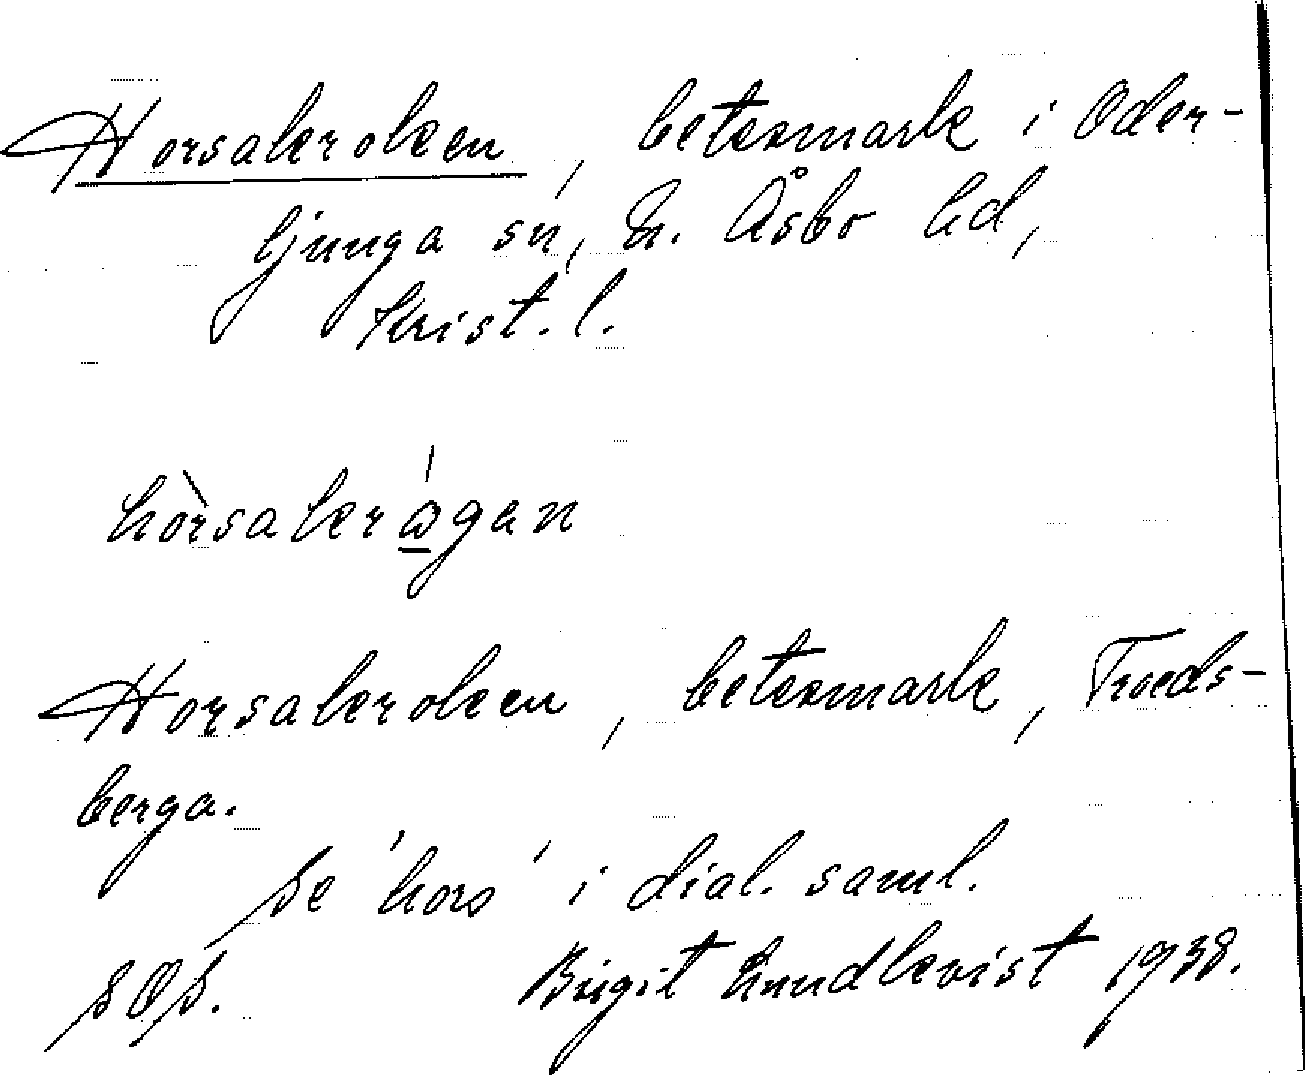 Horsakroken, betesmark i Oder-
ljunga sn, N. Åsbo hd,
Krist. l.
hòrsakerágan
Horsakroken, betesmark, Troeds-
berga.
Se 'hors' i dial. saml.
Birgit Lundkvist 1938.